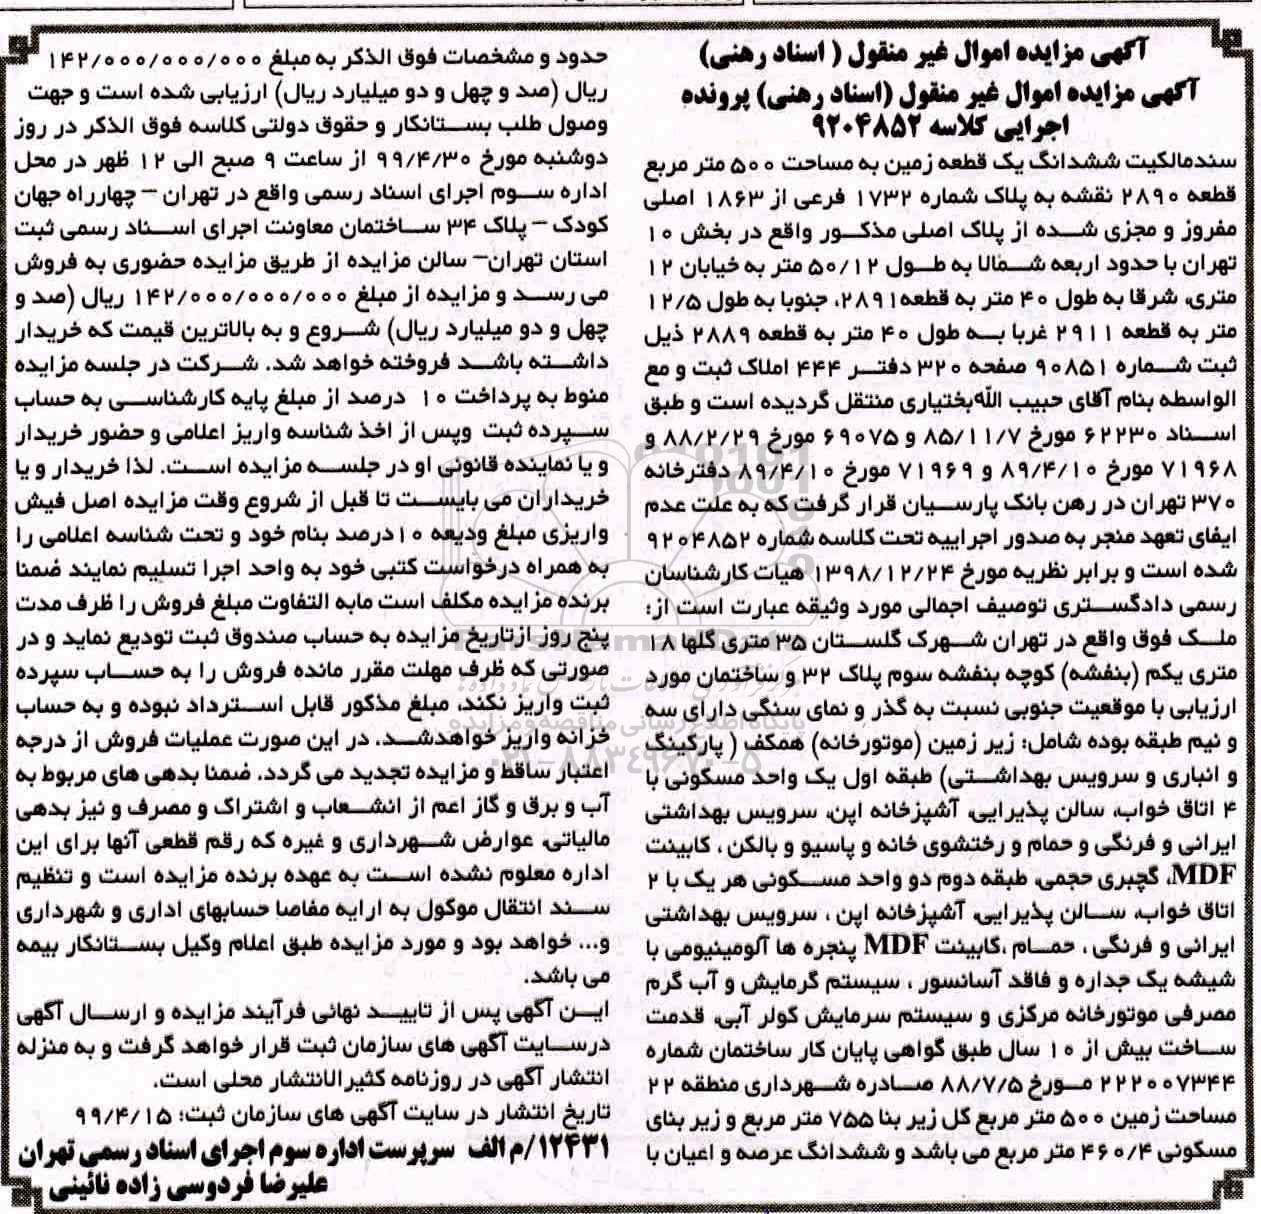 آگهی مزایده اموال غیر منقول ( اسناد رهنی)
آگهی مزایده اموال غیر منقول (اسناد رهنی) پرونده
اجرایی کلاسه ۹۲۰۴۸۵۲
سندمالکیت ششدانگ یک قطعه زمین به مساحت ۵۰۰ متر مربع
قطعه ۲۸۹۰ نقشه به پلاک شماره ۱۷۳۲ فرعی از ۱۸۶۳ اصلی
مفروز و مجزی شده از پلاک اصلی مذکور واقع در بخش ۱۰
تهران با حدود اربعه شمالا به طول ۵۰/۱۲ متر به خیابان ۱۲
متری، شرقا به طول ۴۰ متر به قطعه۲۸۹۱، جنوبا به طول ۱۲/۵
متر به قطعه ۲۹۱۱ غربا به طول ۴۰ متر به قطعه ۲۸۸۹ ذیل
ثبت شماره ۹۰۸۵۱ صفحه ۳۲۰ دفتر ۴۴۴ املاک ثبت و مع
الواسطه بنام آقای حبیب اللهبختیاری منتقل گردیده است و طبق
اسناد ۶۲۲۳۰ مورخ ۸۵/۱۱/۷ و ۶۹۰۷۵ مورخ ۸۸/۲/۲۹ و
۷۱۹۶۸ مورخ ۸۹/۴/۱۰ و ۷۱۹۶۹ مورخ ۸۹/۴/۱۰ دفترخانه
۳۷۰ تهران در رهن بانک پارسیان قرار گرفت که به علت عدم
ایفای تعهد منجر به صدور اجراییه تحت کلاسه شماره ۹۲۰۴۸۵۲
شده است و برابر نظریه مورخ ۱۳۹۸/۱۲/۲۴ هیات کارشناسان
رسمی دادگستری توصیف اجمالی مورد وثیقه عبارت است از:
ملک فوق واقع در تهران شهرک گلستان ۳۵ متری گلها ۱۸
متری یکم (بنفشه) کوچه بنفشه سوم پلاک ۳۲ و ساختمان مورد
ارزیابی با موقعیت جنوبی نسبت به گذر و نمای سنگی دارای سه
و نیم طبقه بوده شامل: زیر زمین (موتورخانه) همکف ( پارکینگ
و انباری و سرویس بهداشتی) طبقه اول یک واحد مسکونی با
۴ اتاق خواب، سالن پذیرایی، آشپزخانه اپن، سرویس بهداشتی
ایرانی و فرنگی و حمام و رختشوی خانه و پاسیو و بالکن ، کابینت
MDF، گچبری حجمی، طبقه دوم دو واحد مسکونی هر یک با ۲
اتاق خواب، سالن پذیرایی، آشپزخانه اپن ، سرویس بهداشتی
ایرانی و فرنگی ، حمام ،کابینت MDF پنجره ها آلومینیومی با
شیشه یک جداره و فاقد آسانسور ، سیستم گرمایش و آب گرم
مصرفی موتورخانه مرکزی و سیستم سرمایش کولر آبی، قدمت
ساخت بیش از ۱۰ سال طبق گواهی پایان کار ساختمان شماره
۲۲۲۰۰۷۳۴۴ مورخ ۸۸/۷/۵ صادره شهرداری منطقه ۲۲
مساحت زمین ۵۰۰ متر مربع کل زیر بنا ۷۵۵ متر مربع و زیر بنای
مسکونی ۴۶۰/۴ متر مربع می باشد و ششدانگ عرصه و اعیان با
حدود و مشخصات فوق الذکر به مبلغ ۱۴۲/۰۰۰/۰۰۰/۰۰۰
ریال (صد و چهل و دو میلیارد ریال) ارزیابی شده است و جهت
وصول طلب بستانکار و حقوق دولتی کلاسه فوق الذکر در روز
دوشنبه مورخ ۹۹/۴/۳۰ از ساعت ۹ صبح الی ۱۲ ظهر در محل
اداره سوم اجرای اسناد رسمی واقع در تهران – چهارراه جهان
کودک – پلاک ۳۴ ساختمان معاونت اجرای اسناد رسمی ثبت
استان تهران– سالن مزایده از طریق مزایده حضوری به فروش
می رسد و مزایده از مبلغ ۱۴۲/۰۰۰/۰۰۰/۰۰۰ ریال (صد و
چهل و دو میلیارد ریال) شروع و به بالاترین قیمت که خریدار
داشته باشد فروخته خواهد شد. شرکت در جلسه مزایده
منوط به پرداخت ۱۰ درصد از مبلغ پایه کارشناسی به حساب
سپرده ثبت وپس از اخذ شناسه واریز اعلامی و حضور خریدار
و یا نماینده قانونی او در جلسه مزایده است. لذا خریدار و یا
خریداران می بایست تا قبل از شروع وقت مزایده اصل فیش
واریزی مبلغ ودیعه ۱۰درصد بنام خود و تحت شناسه اعلامی را
به همراه درخواست کتبی خود به واحد اجرا تسلیم نمایند ضمنا
برنده مزایده مکلف است مابه التفاوت مبلغ فروش را ظرف مدت
پنج روز ازتاریخ مزایده به حساب صندوق ثبت تودیع نماید و در
صورتی که ظرف مهلت مقرر مانده فروش را به حساب سپرده
ثبت واریز نکند، مبلغ مذکور قابل استرداد نبوده و به حساب
خزانه واریز خواهدشد. در این صورت عملیات فروش از درجه
اعتبار ساقط و مزایده تجدید می گردد. ضمنا بدهی های مربوط به
آب و برق و گاز اعم از انشعاب و اشتراک و مصرف و نیز بدهی
مالیاتی، عوارض شهرداری و غیره که رقم قطعی آنها برای این
اداره معلوم نشده است به عهده برنده مزایده است و تنظیم
سند انتقال موکول به ارایه مفاصا حسابهای اداری و شهرداری
و... خواهد بود و مورد مزایده طبق اعلام وکیل بستانکار بیمه
می باشد.
این آگهی پس از تایید نهائی فرآیند مزایده و ارسال آگهی
درسایت آگهی های سازمان ثبت قرار خواهد گرفت و به منزله
انتشار آگهی در روزنامه کثیرالانتشار محلی است.
تاریخ انتشار در سایت آگهی های سازمان ثبت: ۹۹/۴/۱۵
۱۲۴۳۱/م الف سرپرست اداره سوم اجرای اسناد رسمی تهران
علیرضا فردوسی زاده نائینی
پایگاه اطلاع رسانی مناقصه و مزایده
۰۲۱-۸۸۳۴۹۶۷۰-۵